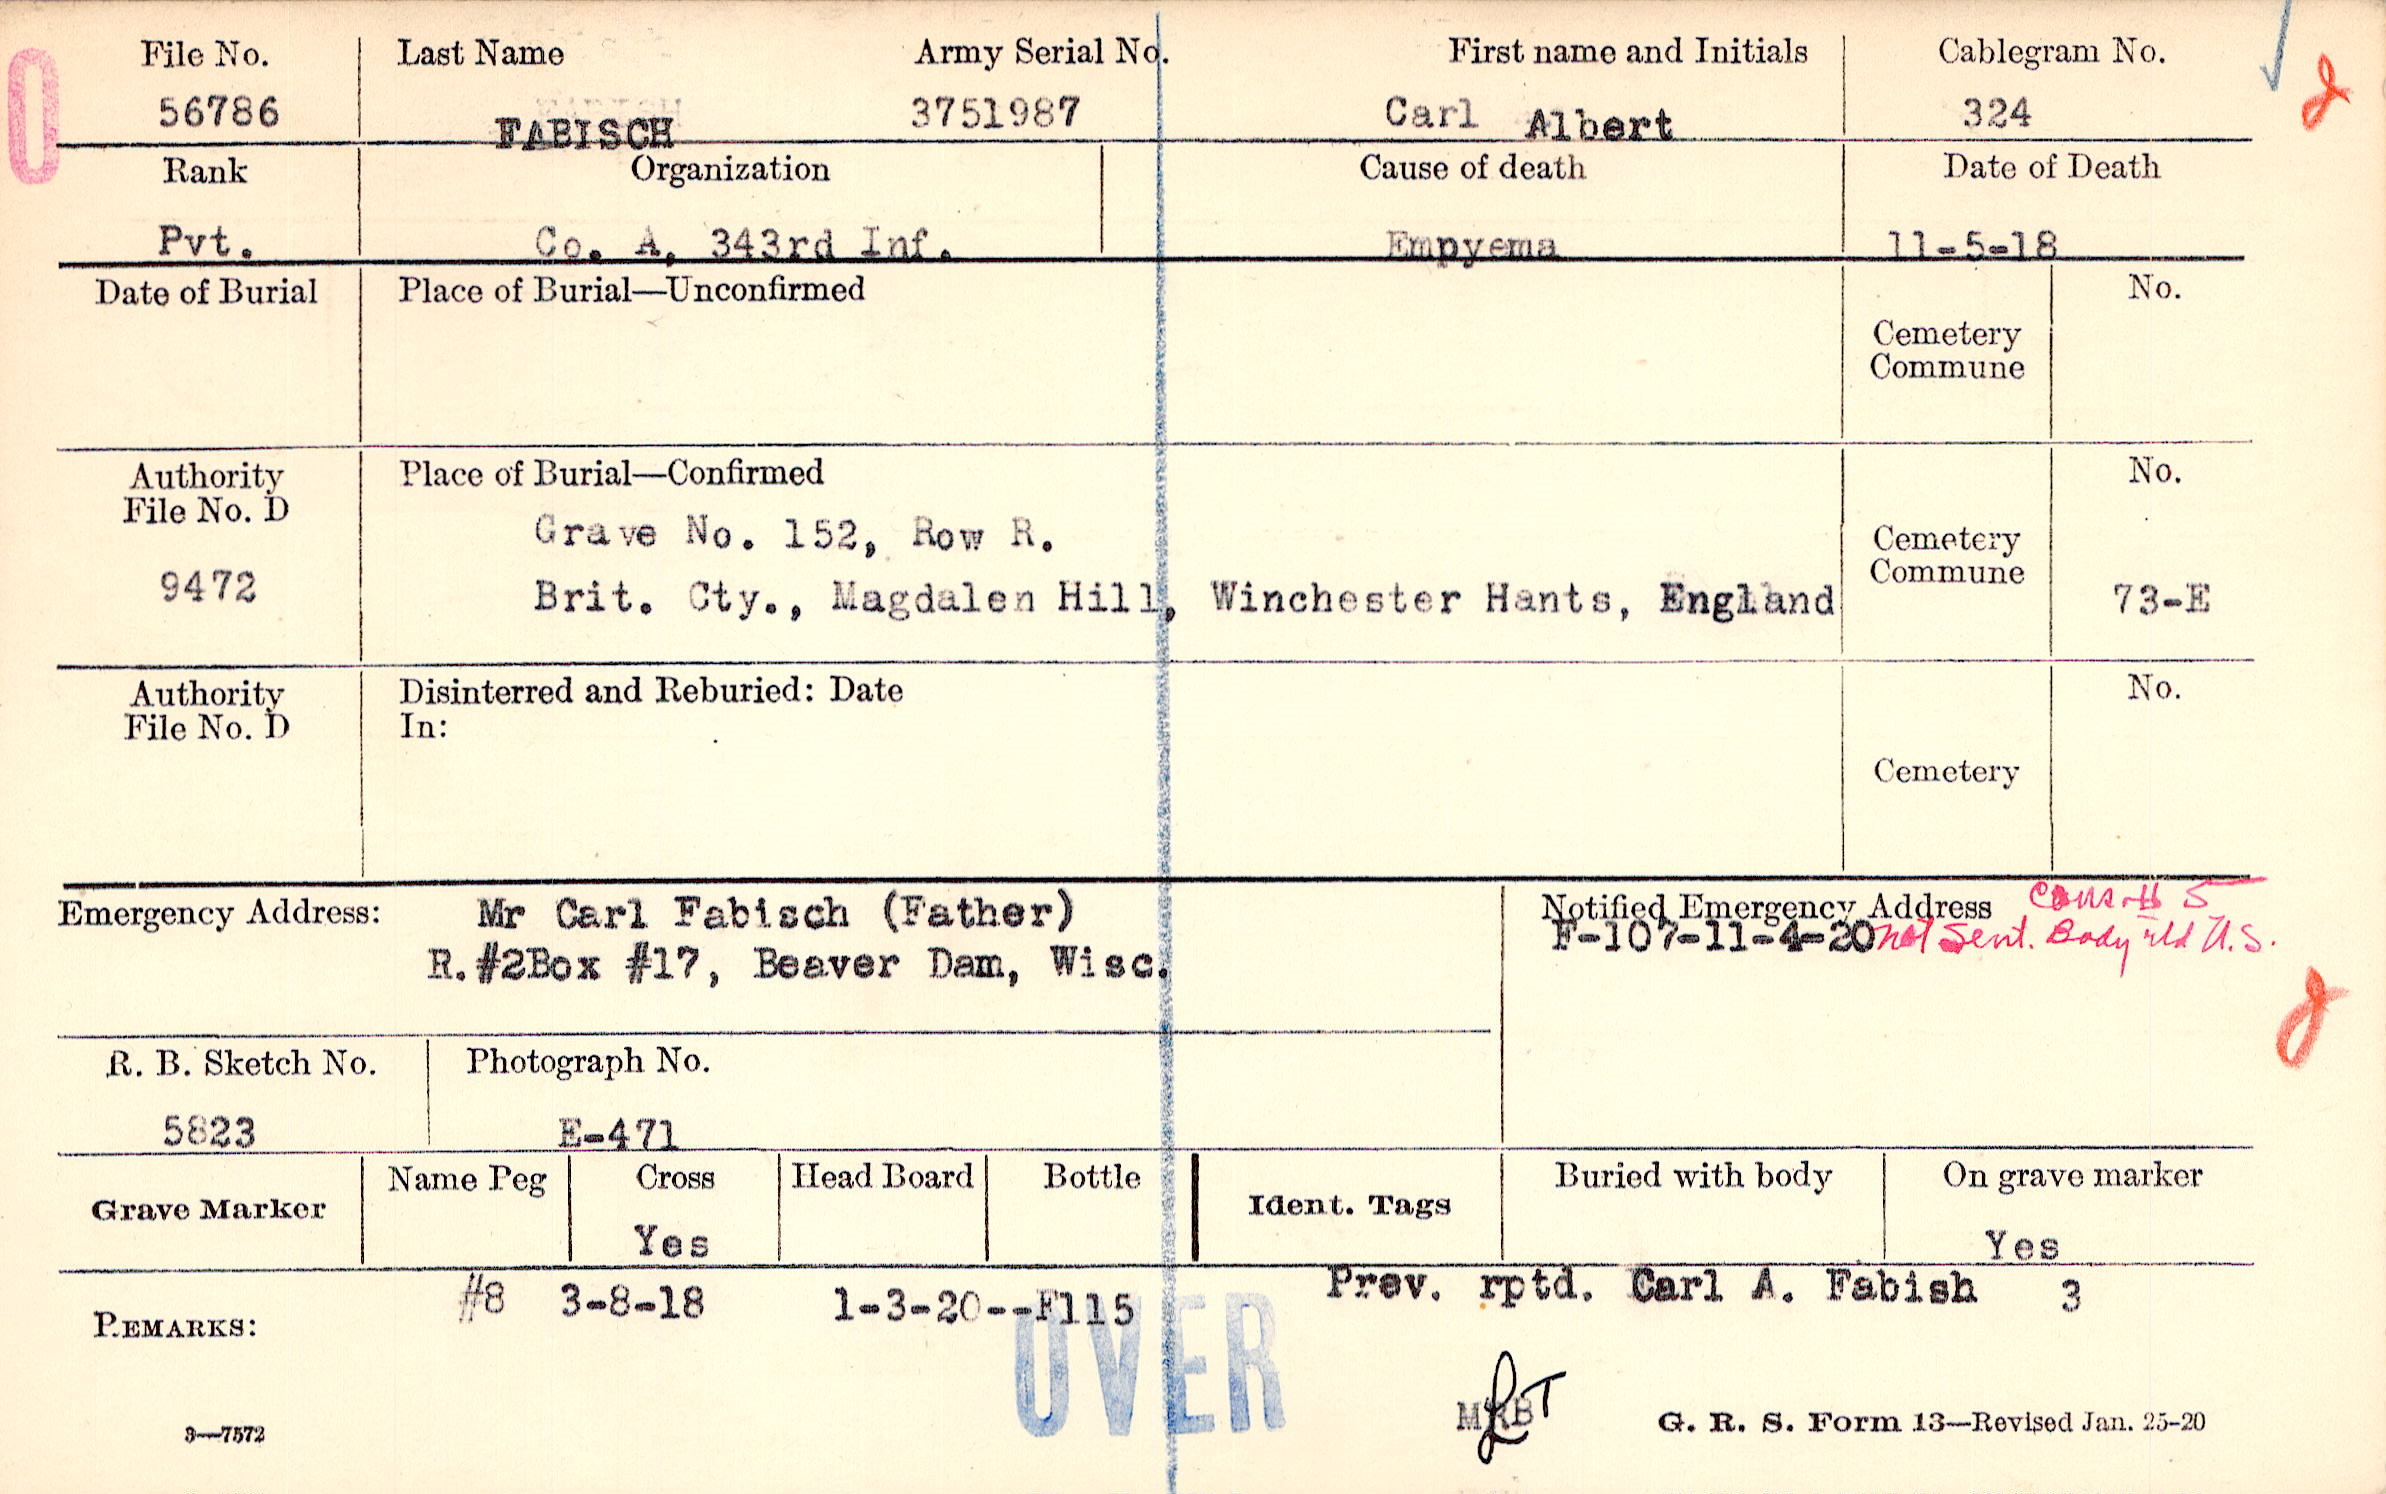 File No. Last Name Army Serial No. First name and Initials Cablegram No.
56786 FABISCH 3751987 Carl Albert 324
Rank Organization Cause of death Date of Death
Pvt. Co. A, 343rd Inf. Empyema 11-5-18
Date of Burial Place of Burial—Unconfirmed No.
Cemetery
Commune
Authority Place of Burial—Confirmed No.
File No. D
Grave No. 152, Row R.
Cemetery
Commune
9472 Brit. Cty., Magdalen Hill, Winchester Hants, England 73-E
Authority Disinterred and Reburied: Date No.
File No. D In:
Cemetery
Emergency Address: Mr Carl Fabisch (Father)
R.#2Box #17, Beaver Dam, Wisc.
Notified Emergency Address
F-107-11-4-20 not Sent. Body U.S.
R. B. Sketch No. Photograph No.
5823 E-471
Grave Marker Name Peg Cross Head Board Bottle Ident. Tags Buried with body On grave marker
Yes Yes
REMARKS: #8 3-8-18 1-3-20--F115 Prev. rptd. Carl A. Fabish 3
OVER
3—7572 G. R. S. Form 13—Revised Jan. 25-20